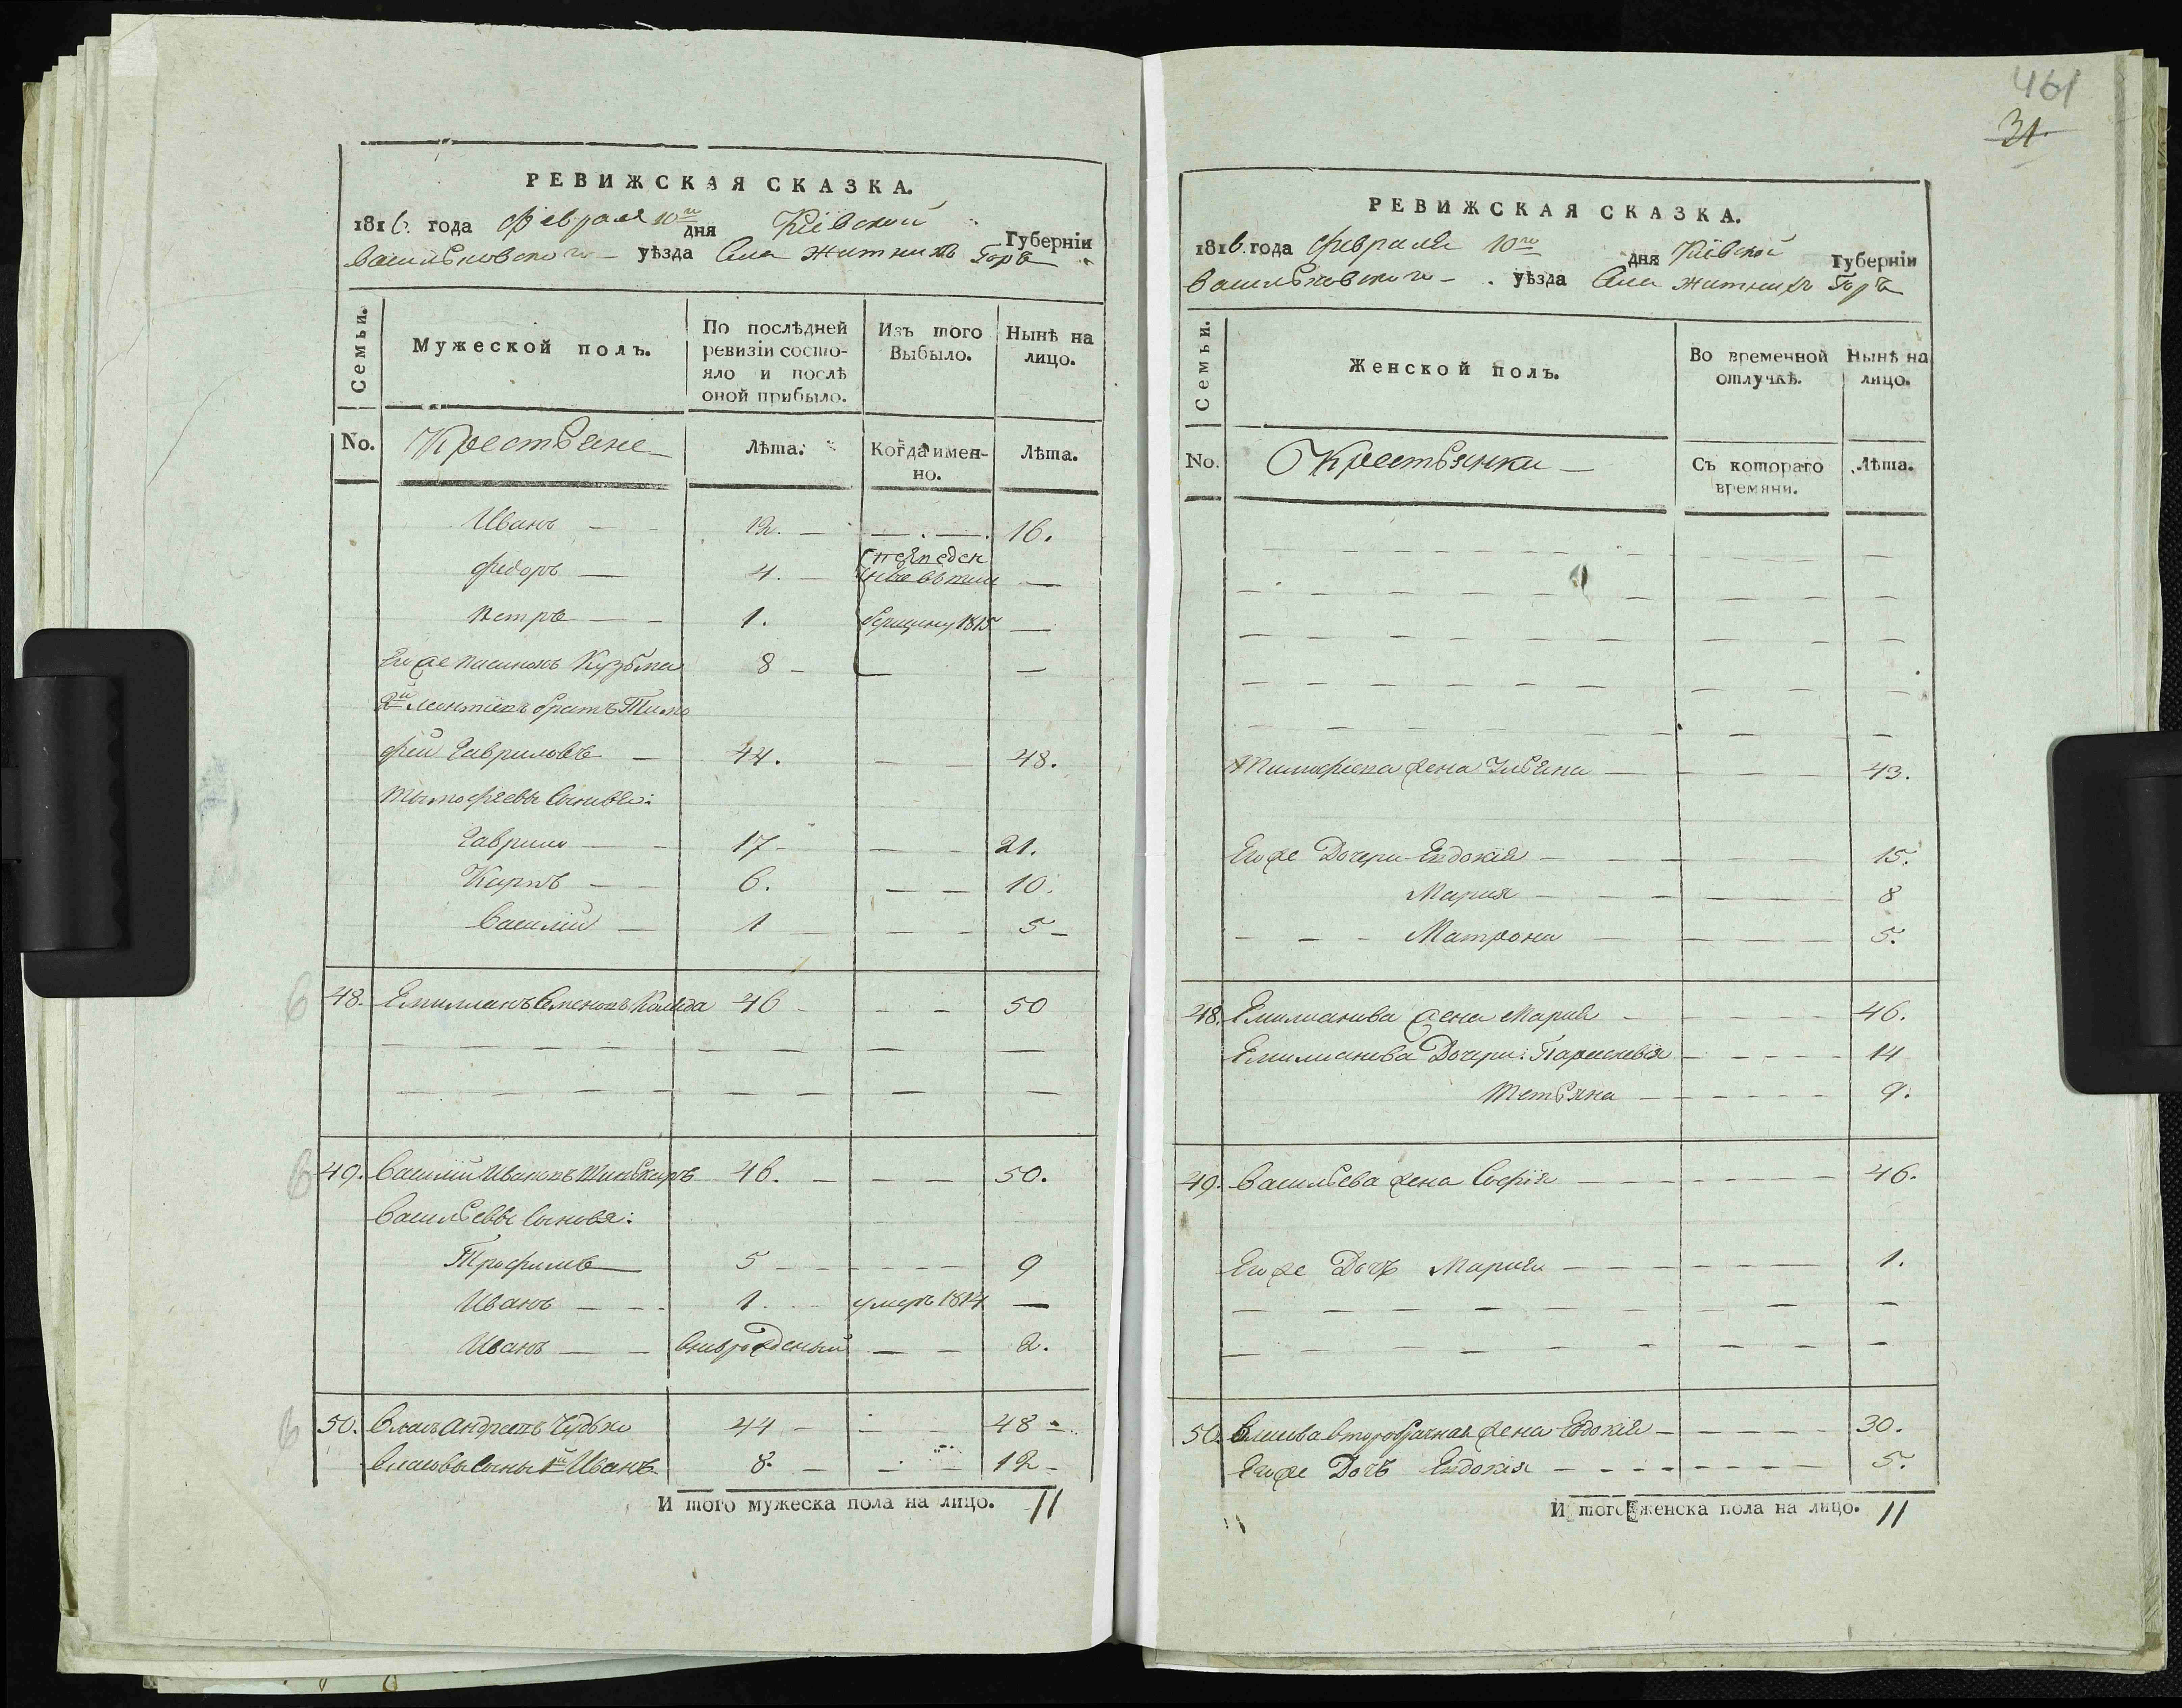 РЕВИЖСКАЯ СКАЗКА.
1816. года Февраля 10го дня Кіевской Губерніи
Васильковского уѣзда Села Житнихъ Горъ
Семьи. Мужеской полъ. По послѣдней ревизіи состояло и послѣ оной прибыло. Изъ того Выбыло. Нынѣ на лицо.
No. Крестьяне Лѣта. Когда именно. Лѣта.
Иванъ — 12. — — . — . 16.
Федоръ — 4. —
Петръ — — 1. 1815 —
Его же пасинокъ Кузьма 8 — —
2й братъ Тимо
фей Гавриловъ — 44. — — 48.
Тимофеевы Сыновья:
Гаврило — — 17 — — — 21.
Карпъ — — 6. — — 10.
Василий — 1 — — — 5 —
48. Емилианъ Семеновъ Коляда 46 — — — 50
49. Василий Ивановъ 46. — — — 50.
Васильевы Сыновья:
Трофимъ 5 — — — — — 9
Иванъ — — 1. — умеръ 1814 —
Иванъ — — вновърожденый — — 2.
50. Власъ Андреевъ Чудько 44 — — — 48 —
Власовы Сыны 1й Иванъ 8. — — 12 —
И того мужеска пола на лицо. 11
461
31.
РЕВИЖСКАЯ СКАЗКА.
1816. года Февраля 10го дня Кіевской Губерніи
Васильковского — уѣзда Села Житнихъ Горъ
Семьи. Женской полъ. Во временной отлучкѣ. Нынѣ на лицо.
No. Крестьянки — Съ котораго времяни. Лѣта.
Тимофеева жена Ульяна — — — — 43.
Его же Дочери Евдокія — — — — 15.
Мария — — — — 8
— — — Матрона — — — — 5.
48. Емилианова жена Мария — — — — 46.
Емилианова Дочери: Параскевія — — — — 14
Тетьяна — — — — 9.
49. Васильева жена Софія — — — — 46.
Его же Дочь Мария — — — — 1.
50. Власова второбрачная жена Евдокія — — — — 30.
Его же Дочь Евдокія — — — — 5.
И того женска пола на лицо. 11